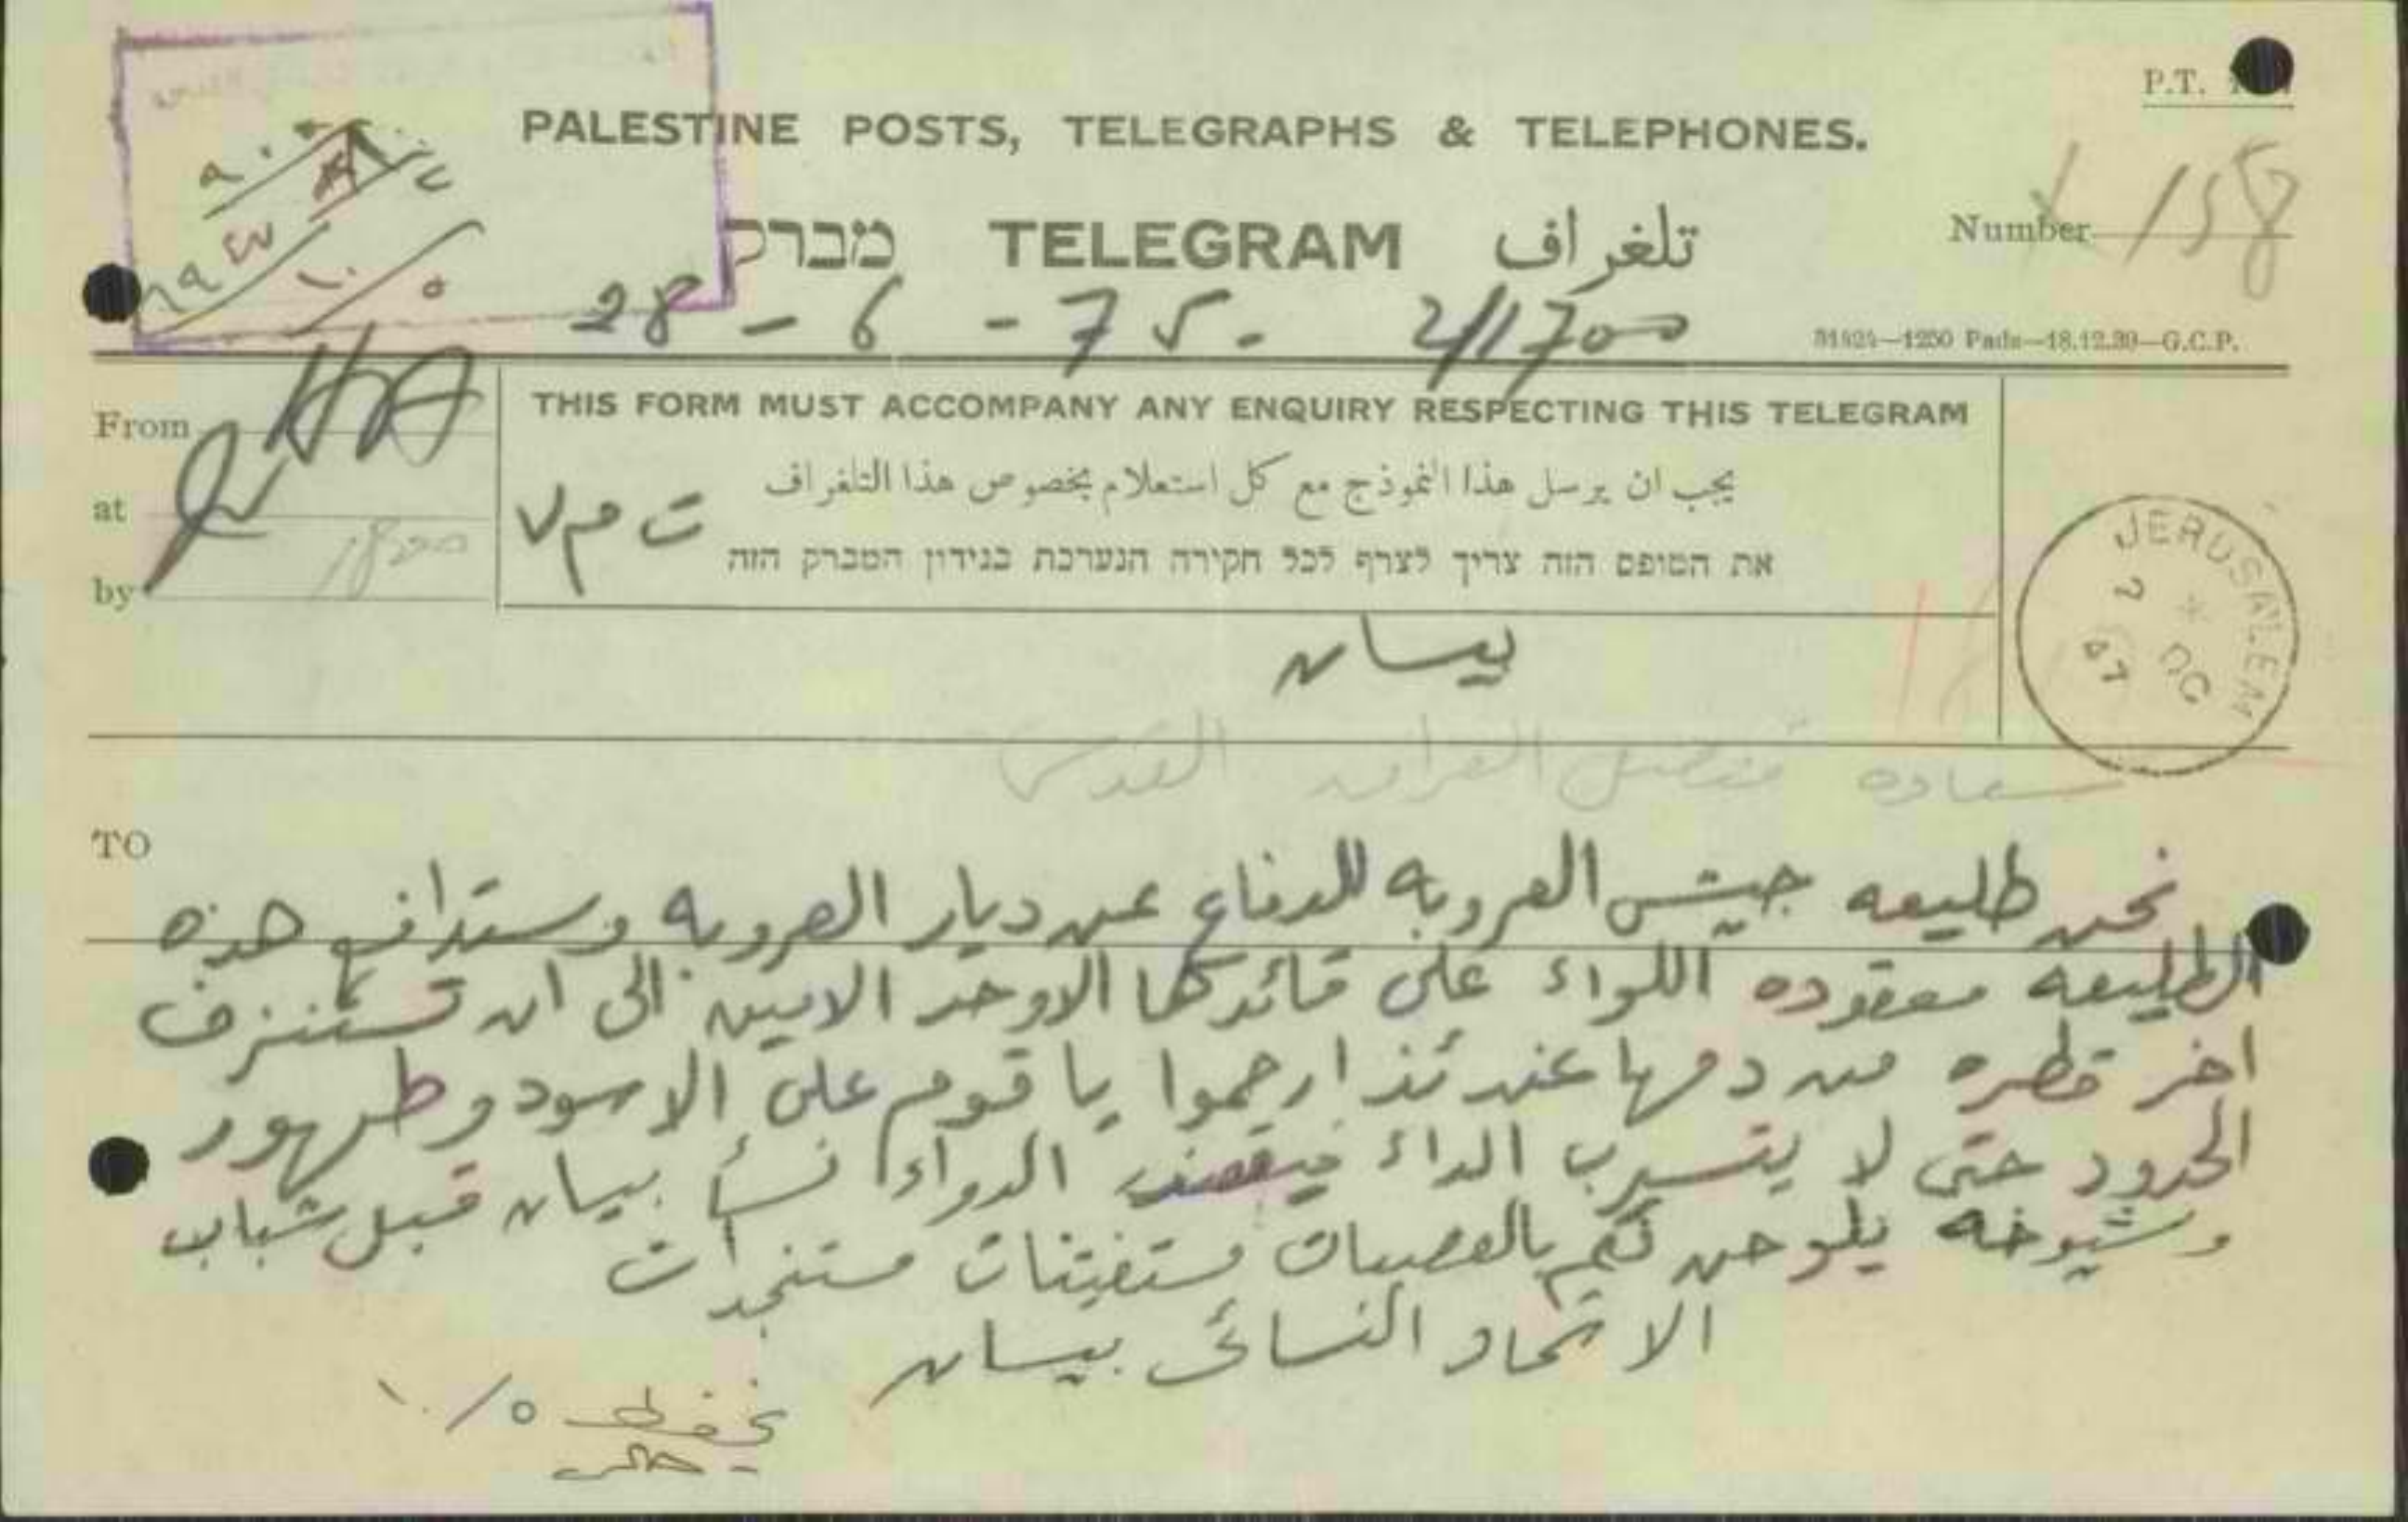 P.T.
PALESTINE POSTS, TELEGRAPHS & TELEPHONES.
מברק TELEGRAM تلغراف
Number 158
28 - 6 - 75 - 2/1700
31824—1250 Pads—18.12.39—G.C.P.
From
at
by
1800
THIS FORM MUST ACCOMPANY ANY ENQUIRY RESPECTING THIS TELEGRAM
يجب ان يرسل هذا النموذج مع كل استعلام بخصوص هذا التلغراف
את הטופס הזה צריך לצרף לכל חקירה הנערכת בנידון המברק הזה
JERUSALEM
2 DC
47
بيسان
سعاده قنصل العراق القدس
TO
نحن طليعه جيش العروبه للدفاع عن ديار العروبه وستدافع هذه
الطليعه معقوده اللواء على قائدها الاوحد الامين الى ان تستنزف
اخر قطره من دمها عندئذ ارحموا يا قوم على الاسود وطهور
الحدود حتى لا يتسرب الداء الدواء نسأ بيسان قبل شباب
وشيوخه يلوحن لكم بالعصبات مستغيثات مستنجدات
الاتحاد النسائى بيسان
يحفظ ١٠/٥